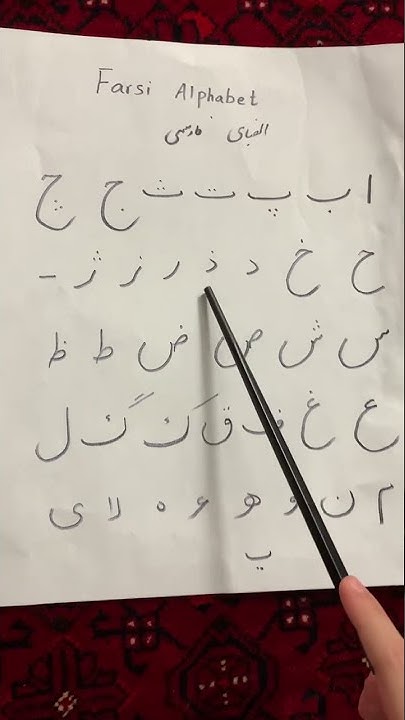 Farsi Alphabet
الفبای فارسی
ا ب پ ت ث ج چ
ح خ د ذ ر ز ژ -
س ش ص ض ط ظ
ع غ ف ق ک گ ل
م ن و هـ ء ه لا ی
یـ